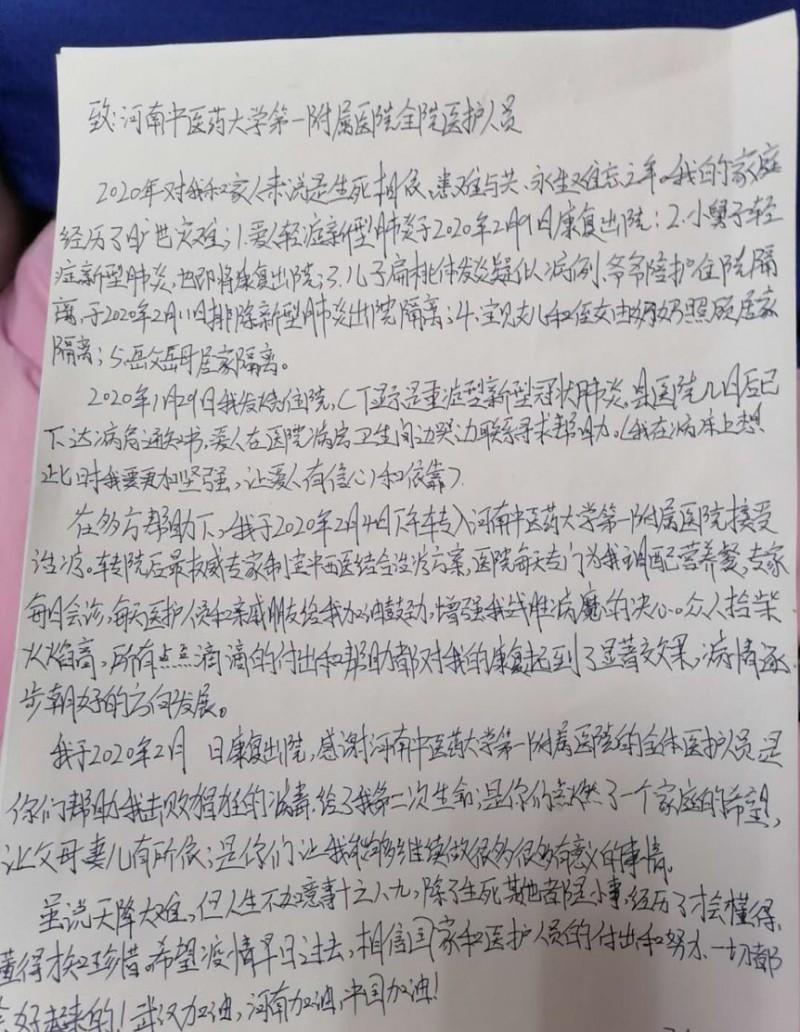 致:河南中医药大学第一附属医院全院医护人员
2020年对我和家人来说是生死相依、患难与共、永生难忘之年。我的家庭
经历了旷世灾难;1.爱人轻症新型肺炎于2020年2月9日康复出院;2.小舅子轻
症新型肺炎,也即将康复出院;3.儿子扁桃体发炎疑似病例,爷爷陪护住院隔
离,于2020年2月11日排除新型肺炎出院隔离;4、宝贝女儿和侄女由奶奶照顾居家
隔离;5.岳父岳母居家隔离。
2020年1月29日我发烧住院,CT显示是重症型新型冠状肺炎,县医院几日后已
下达病危通知书,爱人在医院病房卫生间边哭边联系寻求帮助。(我在病床上想
此时我要更加坚强,让爱人有信心和依靠)
在多方帮助下,我于2020年2月4日下午转入河南中医药大学第一附属医院接受
治疗。转院后最权威专家制定中西医结合治疗方案,医院每天专门为我调配营养餐,专家
每日会诊,每天医护人员和亲戚朋友给我加油鼓劲,增强我战胜病魔的决心。众人拾柴
火焰高,所有点点滴滴的付出和帮助都对我的康复起到了显著效果,病情逐
步朝好的方向发展。
我于2020年2月 日康复出院,感谢河南中医药大学第一附属医院的全体医护人员是
你们帮助我击败猖狂的病毒,给了我第二次生命;是你们点燃了一个家庭的希望,
让父母妻儿有所依;是你们让我能够继续做很多很多有意义的事情。
虽说天降大难,但人生不如意事十之八九,除了生死其他都是小事,经历了才会懂得,
懂得才知珍惜。希望疫情早日过去,相信国家和医护人员的付出和努力,一切都
会好起来的!武汉加油,河南加油,中国加油!